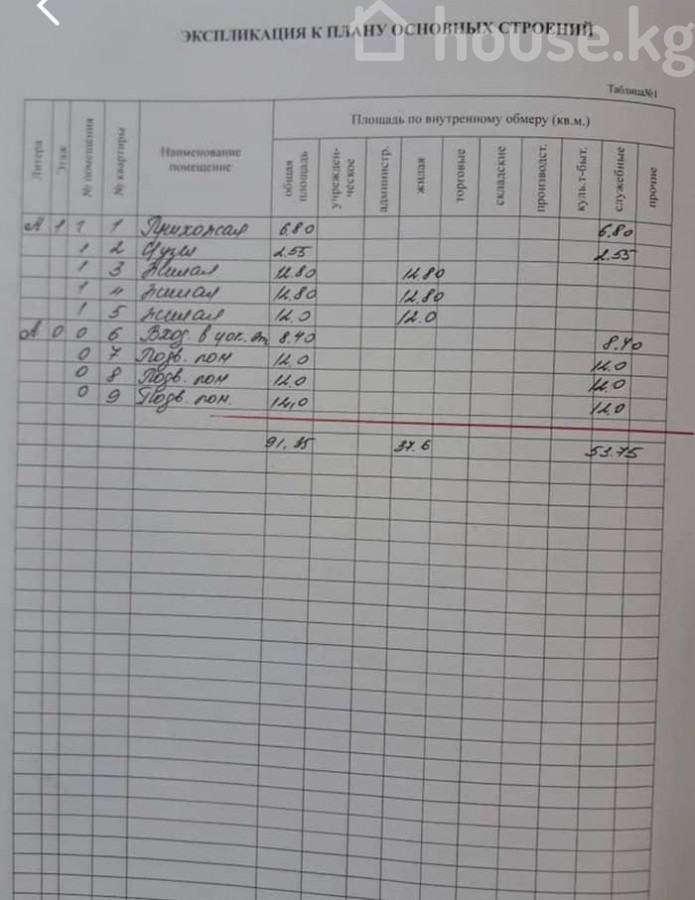 house.kg
ЭКСПЛИКАЦИЯ К ПЛАНУ ОСНОВНЫХ СТРОЕНИЙ
Таблица№1
Литера Этаж № помещения № квартиры Наименование помещение Площадь по внутренному обмеру (кв.м.)
общая площадь учрежден-ческое администр. жилая торговые складские производст. куль.т-быт. служебные прочие
А 1 1 1 Прихожая 6,80 6,80
1 2 С/узел 2.55 2.55
1 3 Жилая 12.80 12.80
1 4 Жилая 12.80 12.80
1 5 Жилая 12.0 12.0
А 0 0 6 Вход в цок. эт 8.40 8.40
0 7 Подв. пом 12.0 12.0
0 8 Подв. пом 12.0 12.0
0 9 Подв. пом. 12,0 12.0
91,35 37.6 53.75